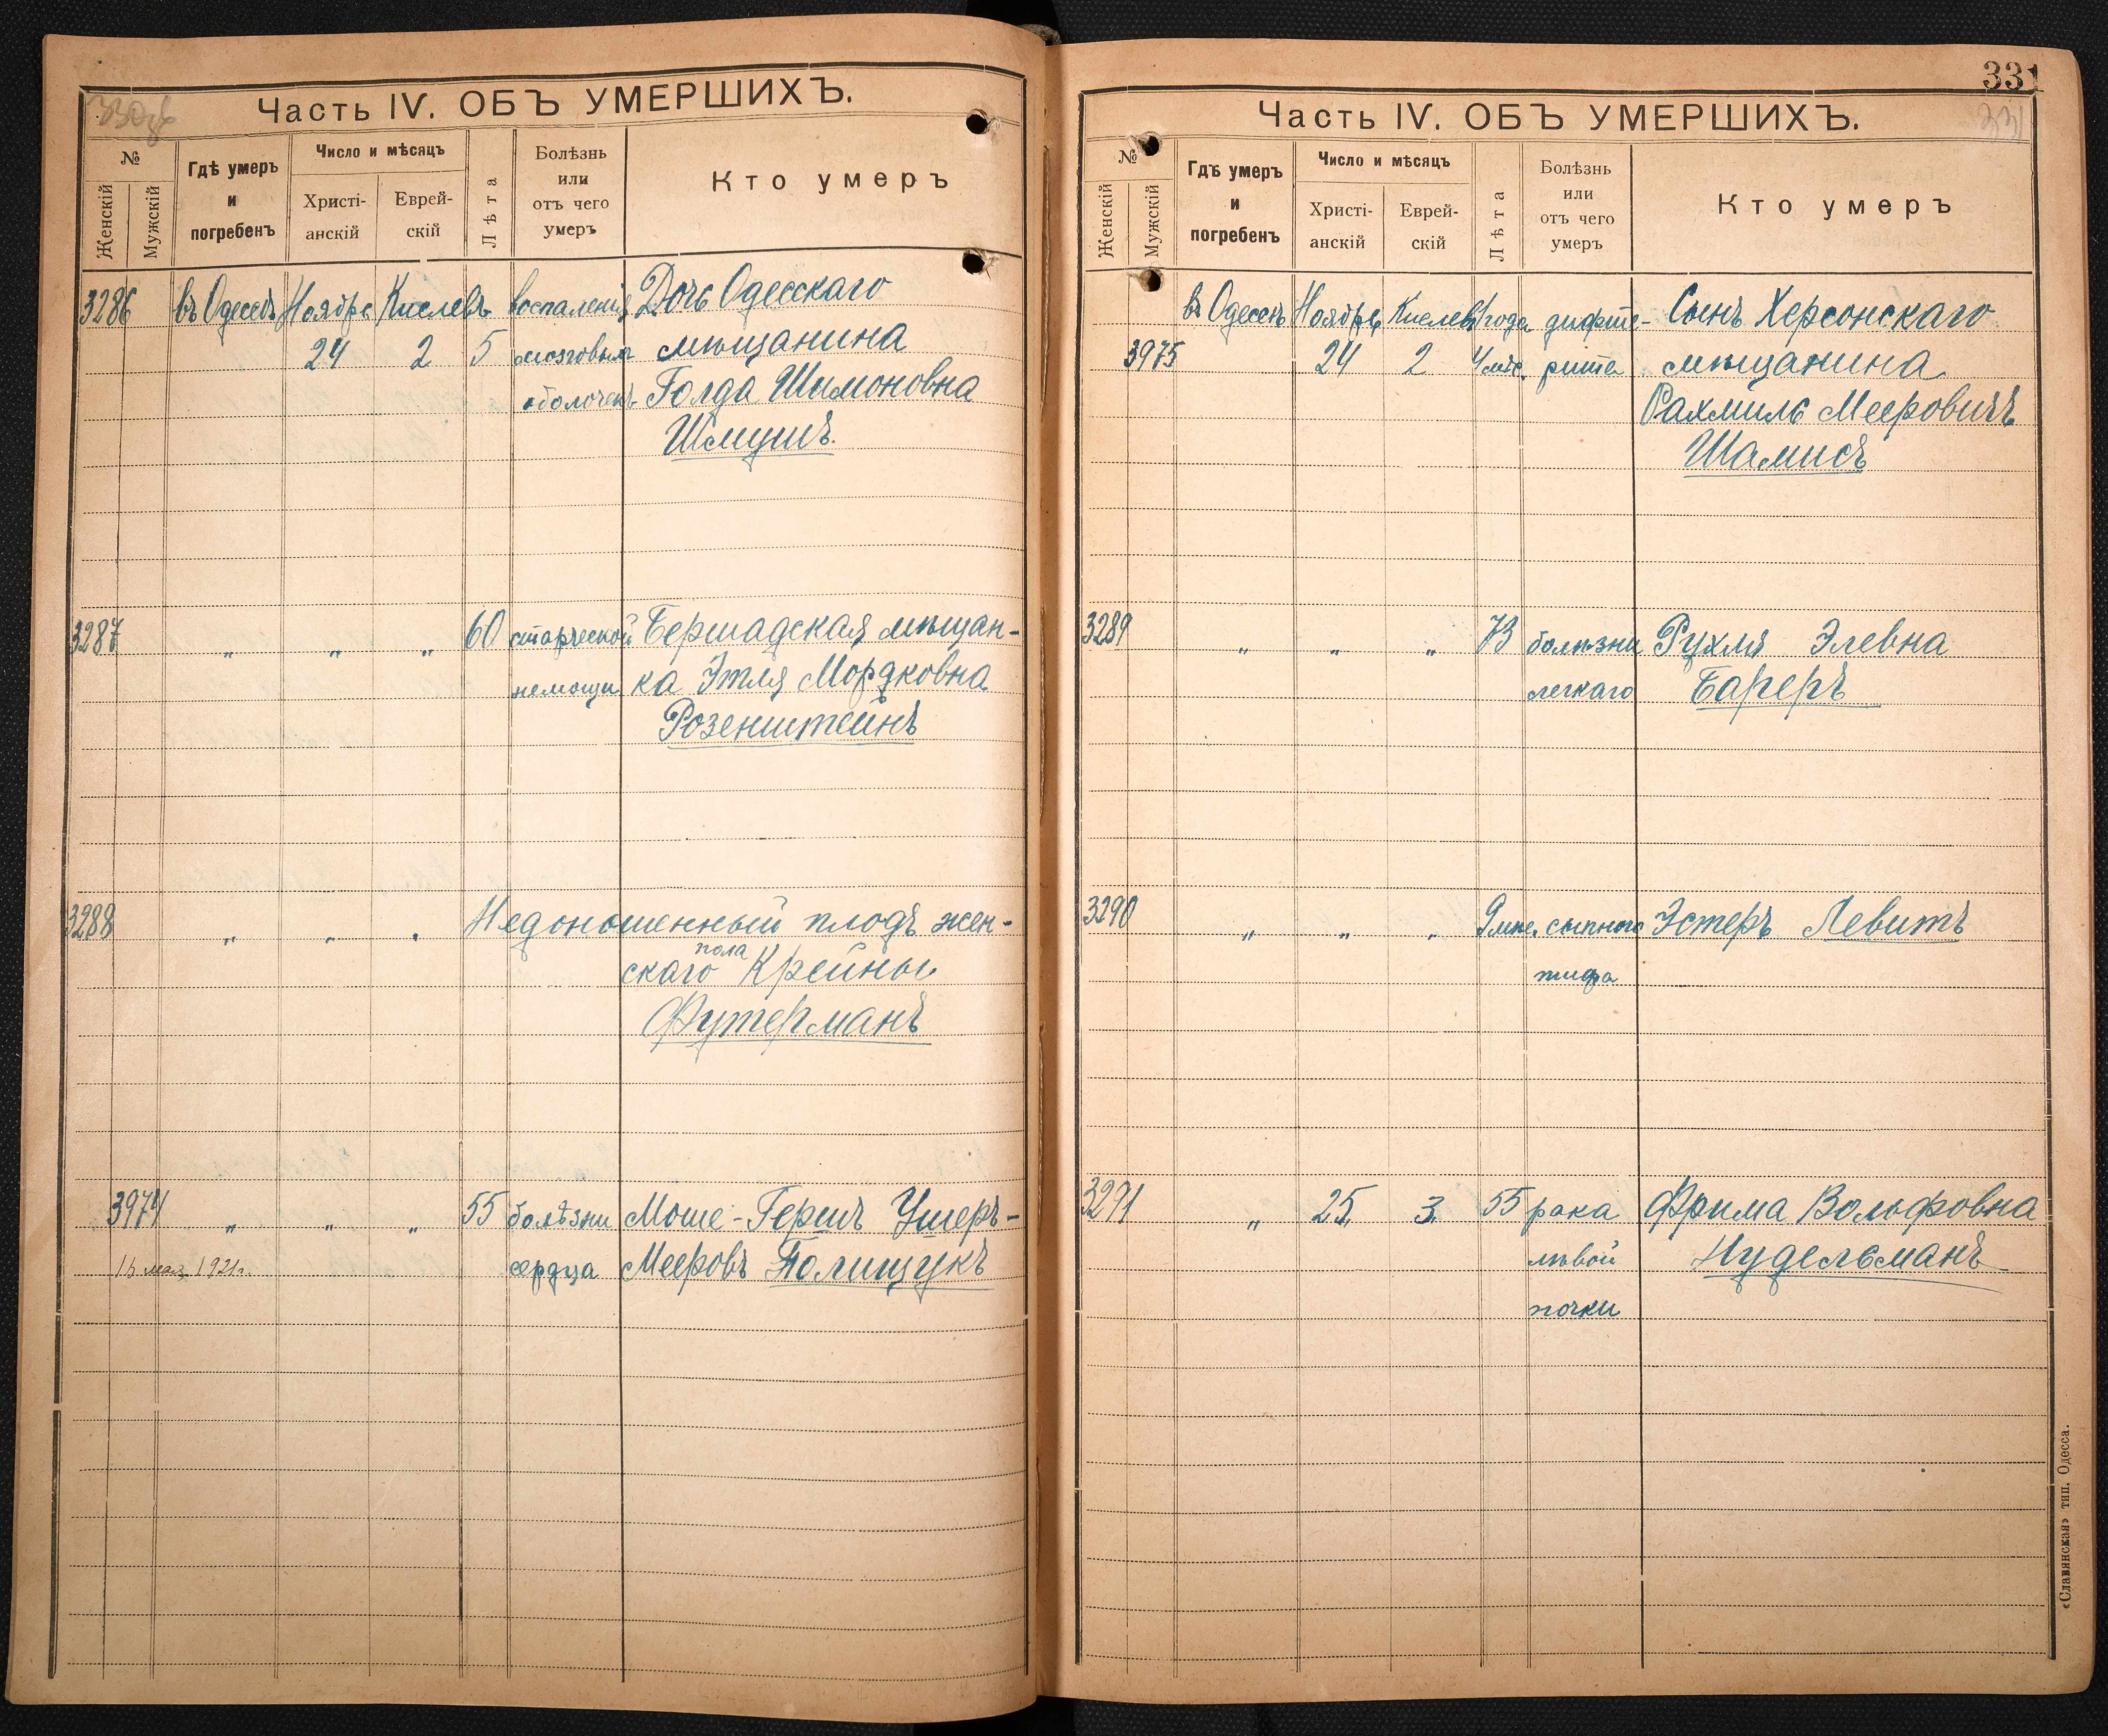 Часть IV. ОБЪ УМЕРШИХЪ.
№
Женскій
Мужскій
Гдѣ умеръ
и
погребенъ
Число и мѣсяцъ
Христі-
анскій
Еврей-
скій
Лѣта
Болѣзнь
или
отъ чего
умеръ
Кто умеръ
3286 въ Одессѣ Ноябрь Кислевъ воспаленія Дочь Одесскаго
24 2 5 мозговыхъ мѣщанина
оболочекъ Голда Шимоновна
Шмушъ.
3287 „ „ „ 60 старческой Бершадская мѣщан-
немощи ка Этля Мордковна
Розенштейнъ
3288 „ „ „ Недоношенный плодъ жен-
скаго пола Крейны
Футерманъ
3974 „ „ „ 55 болѣзни Моше-Гершъ Ушеръ-
1921г. сердца Мееровъ Полищукъ
331
331
Часть IV. ОБЪ УМЕРШИХЪ.
№
Женскій
Мужскій
Гдѣ умеръ
и
погребенъ
Число и мѣсяцъ
Христі-
анскій
Еврей-
скій
Лѣта
Болѣзнь
или
отъ чего
умеръ
Кто умеръ
въ Одессѣ Ноябрь Кислевъ 1 года дифте- Сынъ Херсонскаго
3975 24 2 4 мѣс. рита мѣщанина
Рахмиль Мееровичъ
Шамисъ
3289 „ „ „ 73 болѣзни Рухля Элевна
легкаго Бареръ
3290 „ „ „ сыпного Эстеръ Левитъ
тифа
3291 „ 25 3 55 рака Фрима Вольфовна
лѣвой Нудельманъ
почки
«Славянская» тип. Одесса.